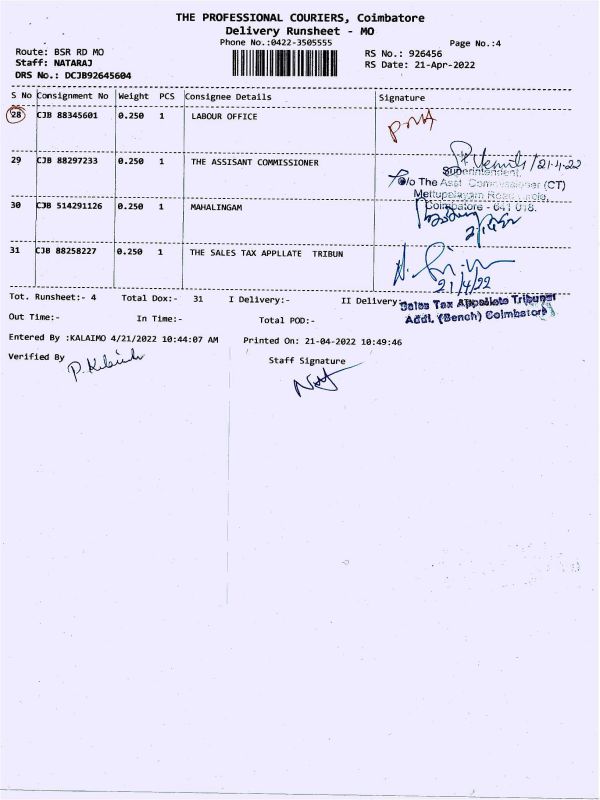 THE PROFESSIONAL COURIERS, Coimbatore
Delivery Runsheet - MO
Phone No.:0422-3505555
Page No.:4
Route: BSR RD MO
RS No.: 926456
Staff: NATARAJ
RS Date: 21-Apr-2022
DRS No.: DCJB92645604
S No Consignment No Weight PCS Consignee Details Signature
28 CJB 88345601 0.250 1 LABOUR OFFICE
29 CJB 88297233 0.250 1 THE ASSISANT COMMISSIONER
21-4-22
Superintendent,
O/o The Asst. Commissioner (CT)
Mettupalayam Road Circle,
Coimbatore - 641 018.
30 CJB 514291126 0.250 1 MAHALINGAM
31 CJB 88258227 0.250 1 THE SALES TAX APPLLATE TRIBUN
21/4/22
Sales Tax Appellate Tribunal
Addl. (Bench) Coimbatore
Tot. Runsheet:- 4 Total Dox:- 31 I Delivery:- II Delivery:-
Out Time:- In Time:- Total POD:-
Entered By :KALAIMO 4/21/2022 10:44:07 AM Printed On: 21-04-2022 10:49:46
Verified By Staff Signature